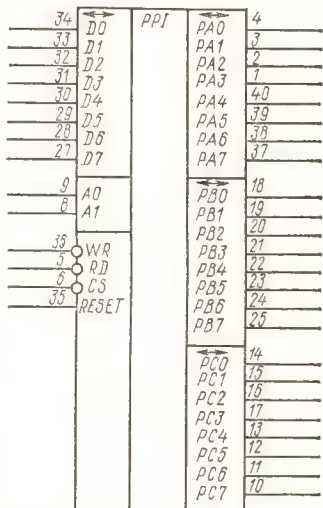 PPI
34 D0
33 D1
32 D2
31 D3
30 D4
29 D5
28 D6
27 D7
9 A0
8 A1
36 WR
5 RD
6 CS
35 RESET
PA0 4
PA1 3
PA2 2
PA3 1
PA4 40
PA5 39
PA6 38
PA7 37
PB0 18
PB1 19
PB2 20
PB3 21
PB4 22
PB5 23
PB6 24
PB7 25
PC0 14
PC1 15
PC2 16
PC3 17
PC4 13
PC5 12
PC6 11
PC7 10